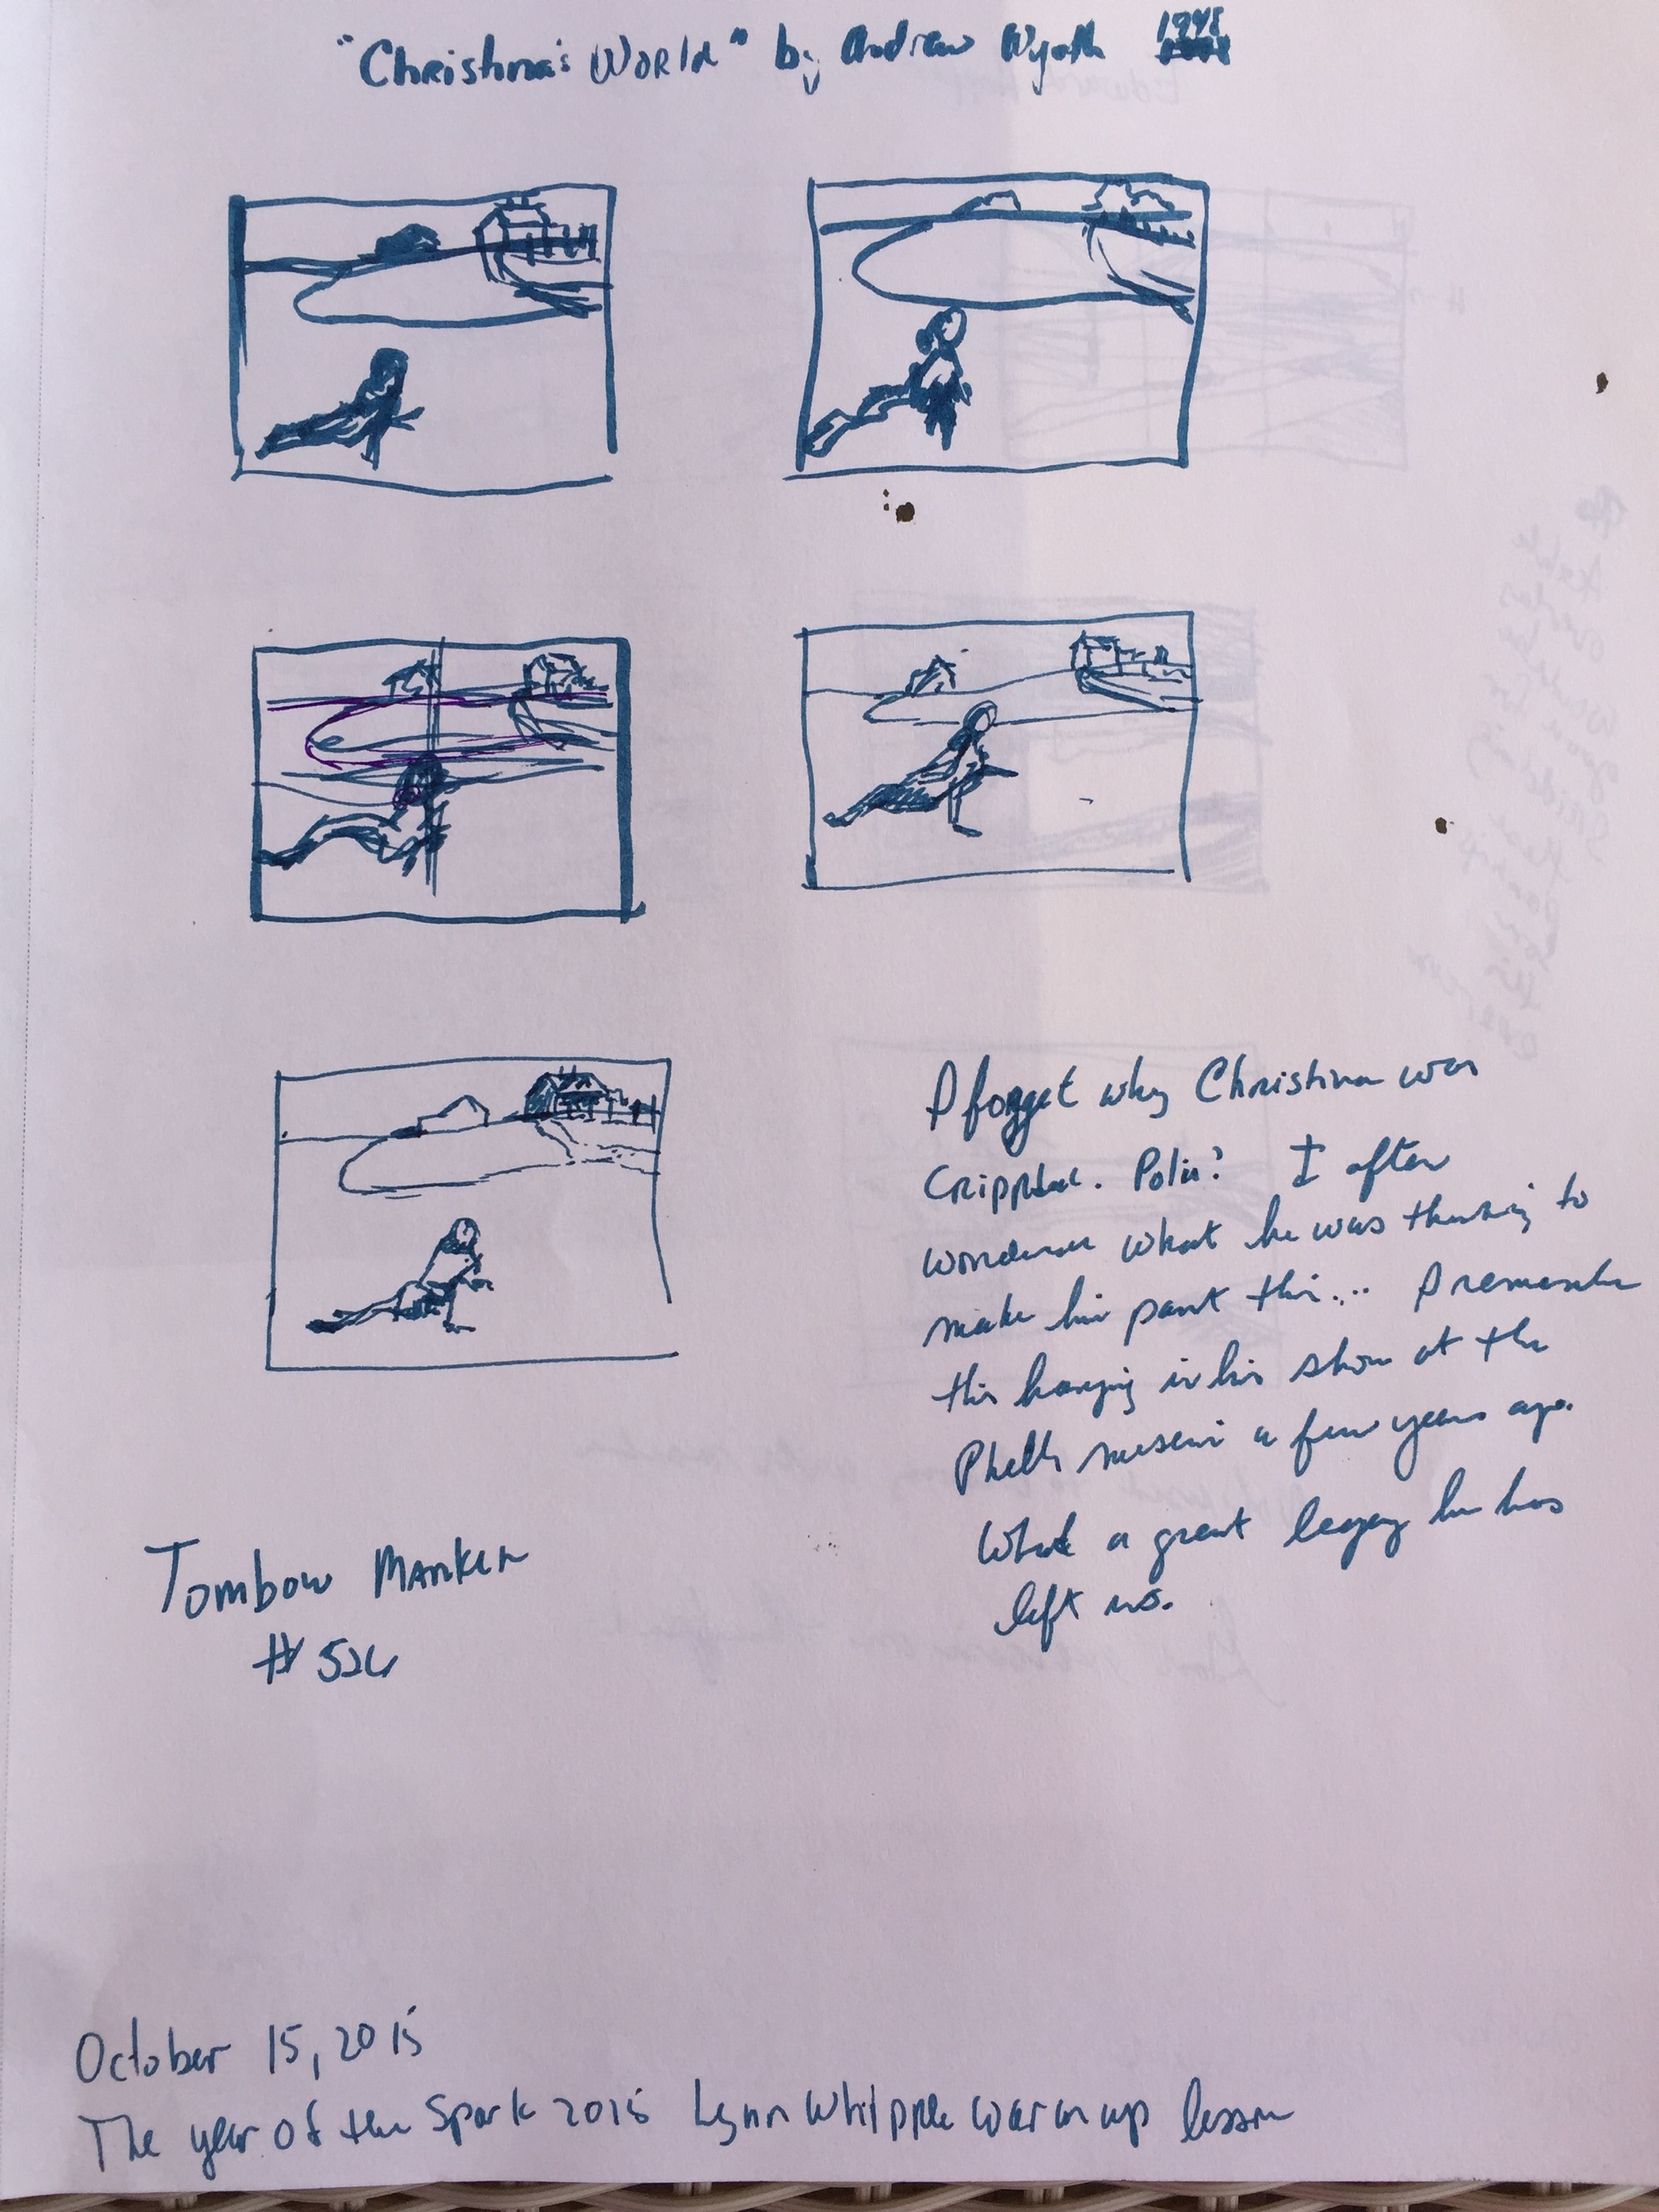 "Christina's World" by Andrew Wyeth 1948
I forget why Christina was
crippled. Polio? I often
wondered what he was thinking to
make him paint this... I remember
this hanging in his show at the
Phila museum a few years ago.
What a great legacy he has
left us.
Tombow Marker
# 526
October 15, 2015
The year of the Spark 2015 Lynn Whipple warm up lesson